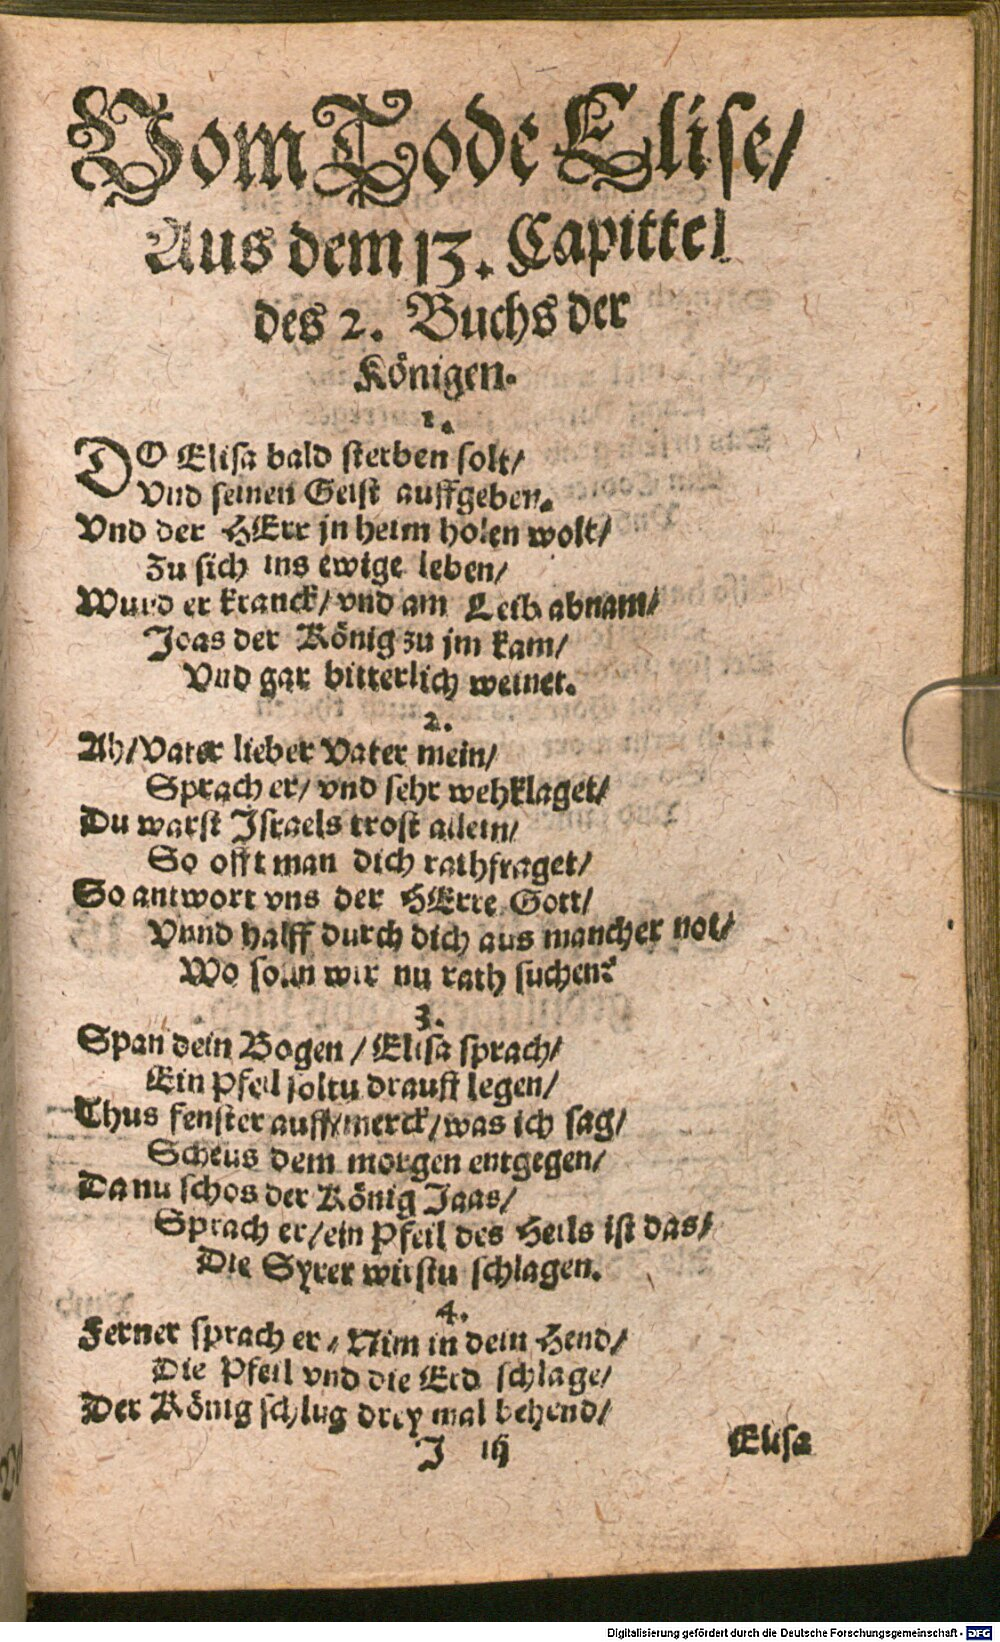 Vom Tode Elise/
Aus dem 13. Capittel
des 2. Buchs der
Königen.
1.
DO Elisa bald sterben solt/
Vnd seinen Geist auffgeben.
Vnd der HErr jn heim holen wolt/
Zu sich ins ewige leben/
Wurd er kranck/ vnd am Leib abnam/
Joas der König zu jm kam/
Vnd gar bitterlich weinet.
2.
Ah/ Vater lieber Vater mein/
Sprach er/ vnd sehr wehklaget/
Du warst Israels trost allein/
So offt man dich rathfraget/
So antwort vns der HErre Gott/
Vnnd halff durch dich aus mancher not/
Wo solln wir nu rath suchen?
3.
Span dein Bogen / Elisa sprach/
Ein Pfeil soltu drauff legen/
Thus fenster auff/ merck/ was ich sag/
Scheus dem morgen entgegen/
Da nu schos der König Jaas/
Sprach er/ ein Pfeil des Heils ist das/
Die Syrer wirstu schlagen.
4.
Ferner sprach er/ Nim in dein Hend/
Die Pfeil vnd die Erd schlage/
Der König schlug drey mal behend/
J iij
Elisa
Digitalisierung gefördert durch die Deutsche Forschungsgemeinschaft - DFG